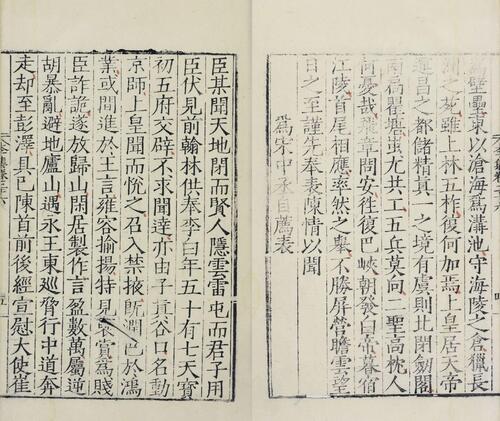 爲壁壘東以滄海爲溝池守海陵之倉獵長
洲之苑雖上林五柞復何加焉上皇居天帝
運昌之都儲精眞一之境有虞則北閉劒閣
南扃瞿塘蚩尤共工五兵莫向二聖高枕人
何憂哉飛章問安往復巴峽朝發白帝暮宿
江陵首尾相應率然之舉不勝屏營瞻雲望
日之至謹先奉表陳情以聞
爲宋中丞自薦表
臣某聞天地閉而賢人隱雲雷屯而君子用
臣伏見前翰林供奉李白年五十有七天寶
初五府交辟不求聞達亦由子眞谷口名動
京師上皇聞而悅之召入禁掖旣潤色於鴻
業或間進於王言雍容揄揚特見褒賞爲賤
臣詐詭遂放歸山閑居製作言盈數萬屬逆
胡暴亂避地廬山遇永王東巡脅行中道奔
走却至彭澤具已陳首前後經宣慰大使崔